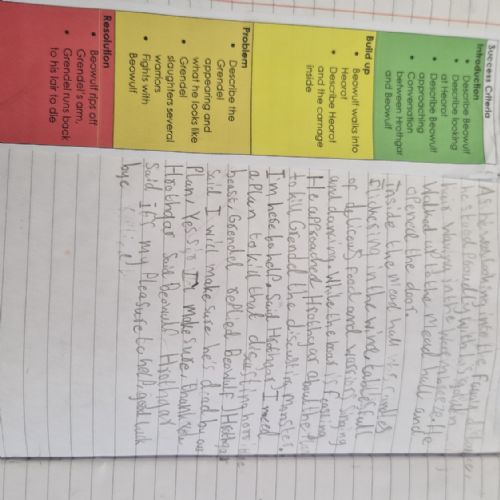 Success Criteria
Introduction
Describe Beowulf
Describe looking
at Hearot
Describe Beowulf
approaching
Conversation
between Hrothgar
and Beowulf
Build up
Beowulf walks into
Hearot
Describe Hearot
and the carnage
inside
Problem
Describe the
Grendel
appearing and
what he looks like
Grendel
slaughters several
warriors
Fights with
Beowulf
Resolution
Beowulf rips off
Grendel's arm.
Grendel runs back
to his lair to die
As he was looking into the
he stood proudly with his golden
hair waving in the
Walked up to the mead hall and
opened the door.
Inside the mead hall candles
flickering in the wind tables full
of delicious food and warriors singing
and dancing. While the
He approached Hrothgar about the
to kill Grendel the disgusting monster.
I'm here to help. Said Hrothgar I need
a plan to kill that disgusting
beast, Grendel replied Beowulf Hrothgar
Said I will make sure he's dead by our
Plan, Yes I'm make sure, thank you
Hrothgar Said Beowulf Hrothgar
Said it's my pleasure to help, good luck
bye